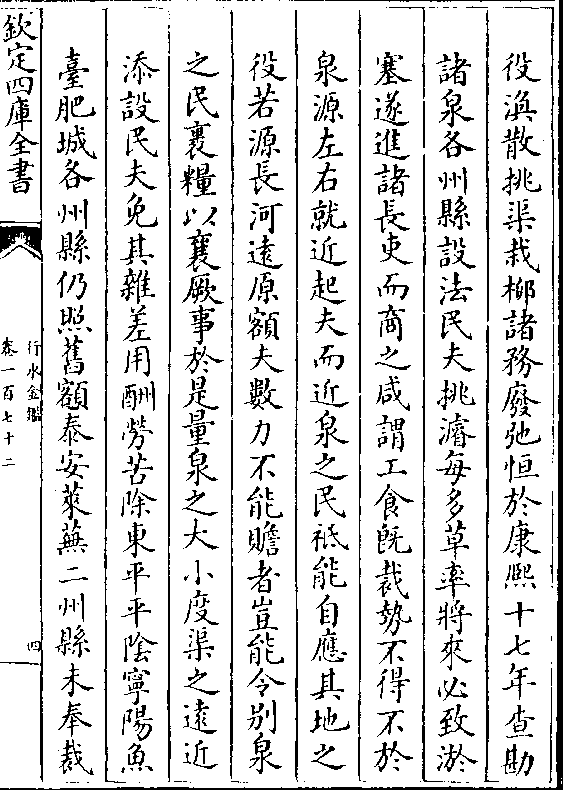 役渙散挑渠栽柳諸務廢弛恒於康熙十七年查勘
諸泉各州縣設法民夫挑濬每多草率將來必致淤
塞遂進諸長吏而商之咸謂工食既裁勢不得不於
泉源左右就近起夫而近泉之民祗能自應其地之
役若源長河遠原額夫數力不能贍者豈能令别泉
之民裹糧以襄厥事於是量泉之大小度渠之遠近
添設民夫免其雜差用酬勞苦除東平平陰寧陽魚
臺肥城各州縣仍照舊額泰安萊蕪二州縣未奉裁
欽定四庫全書
行水金鑑
卷一百七十二
四